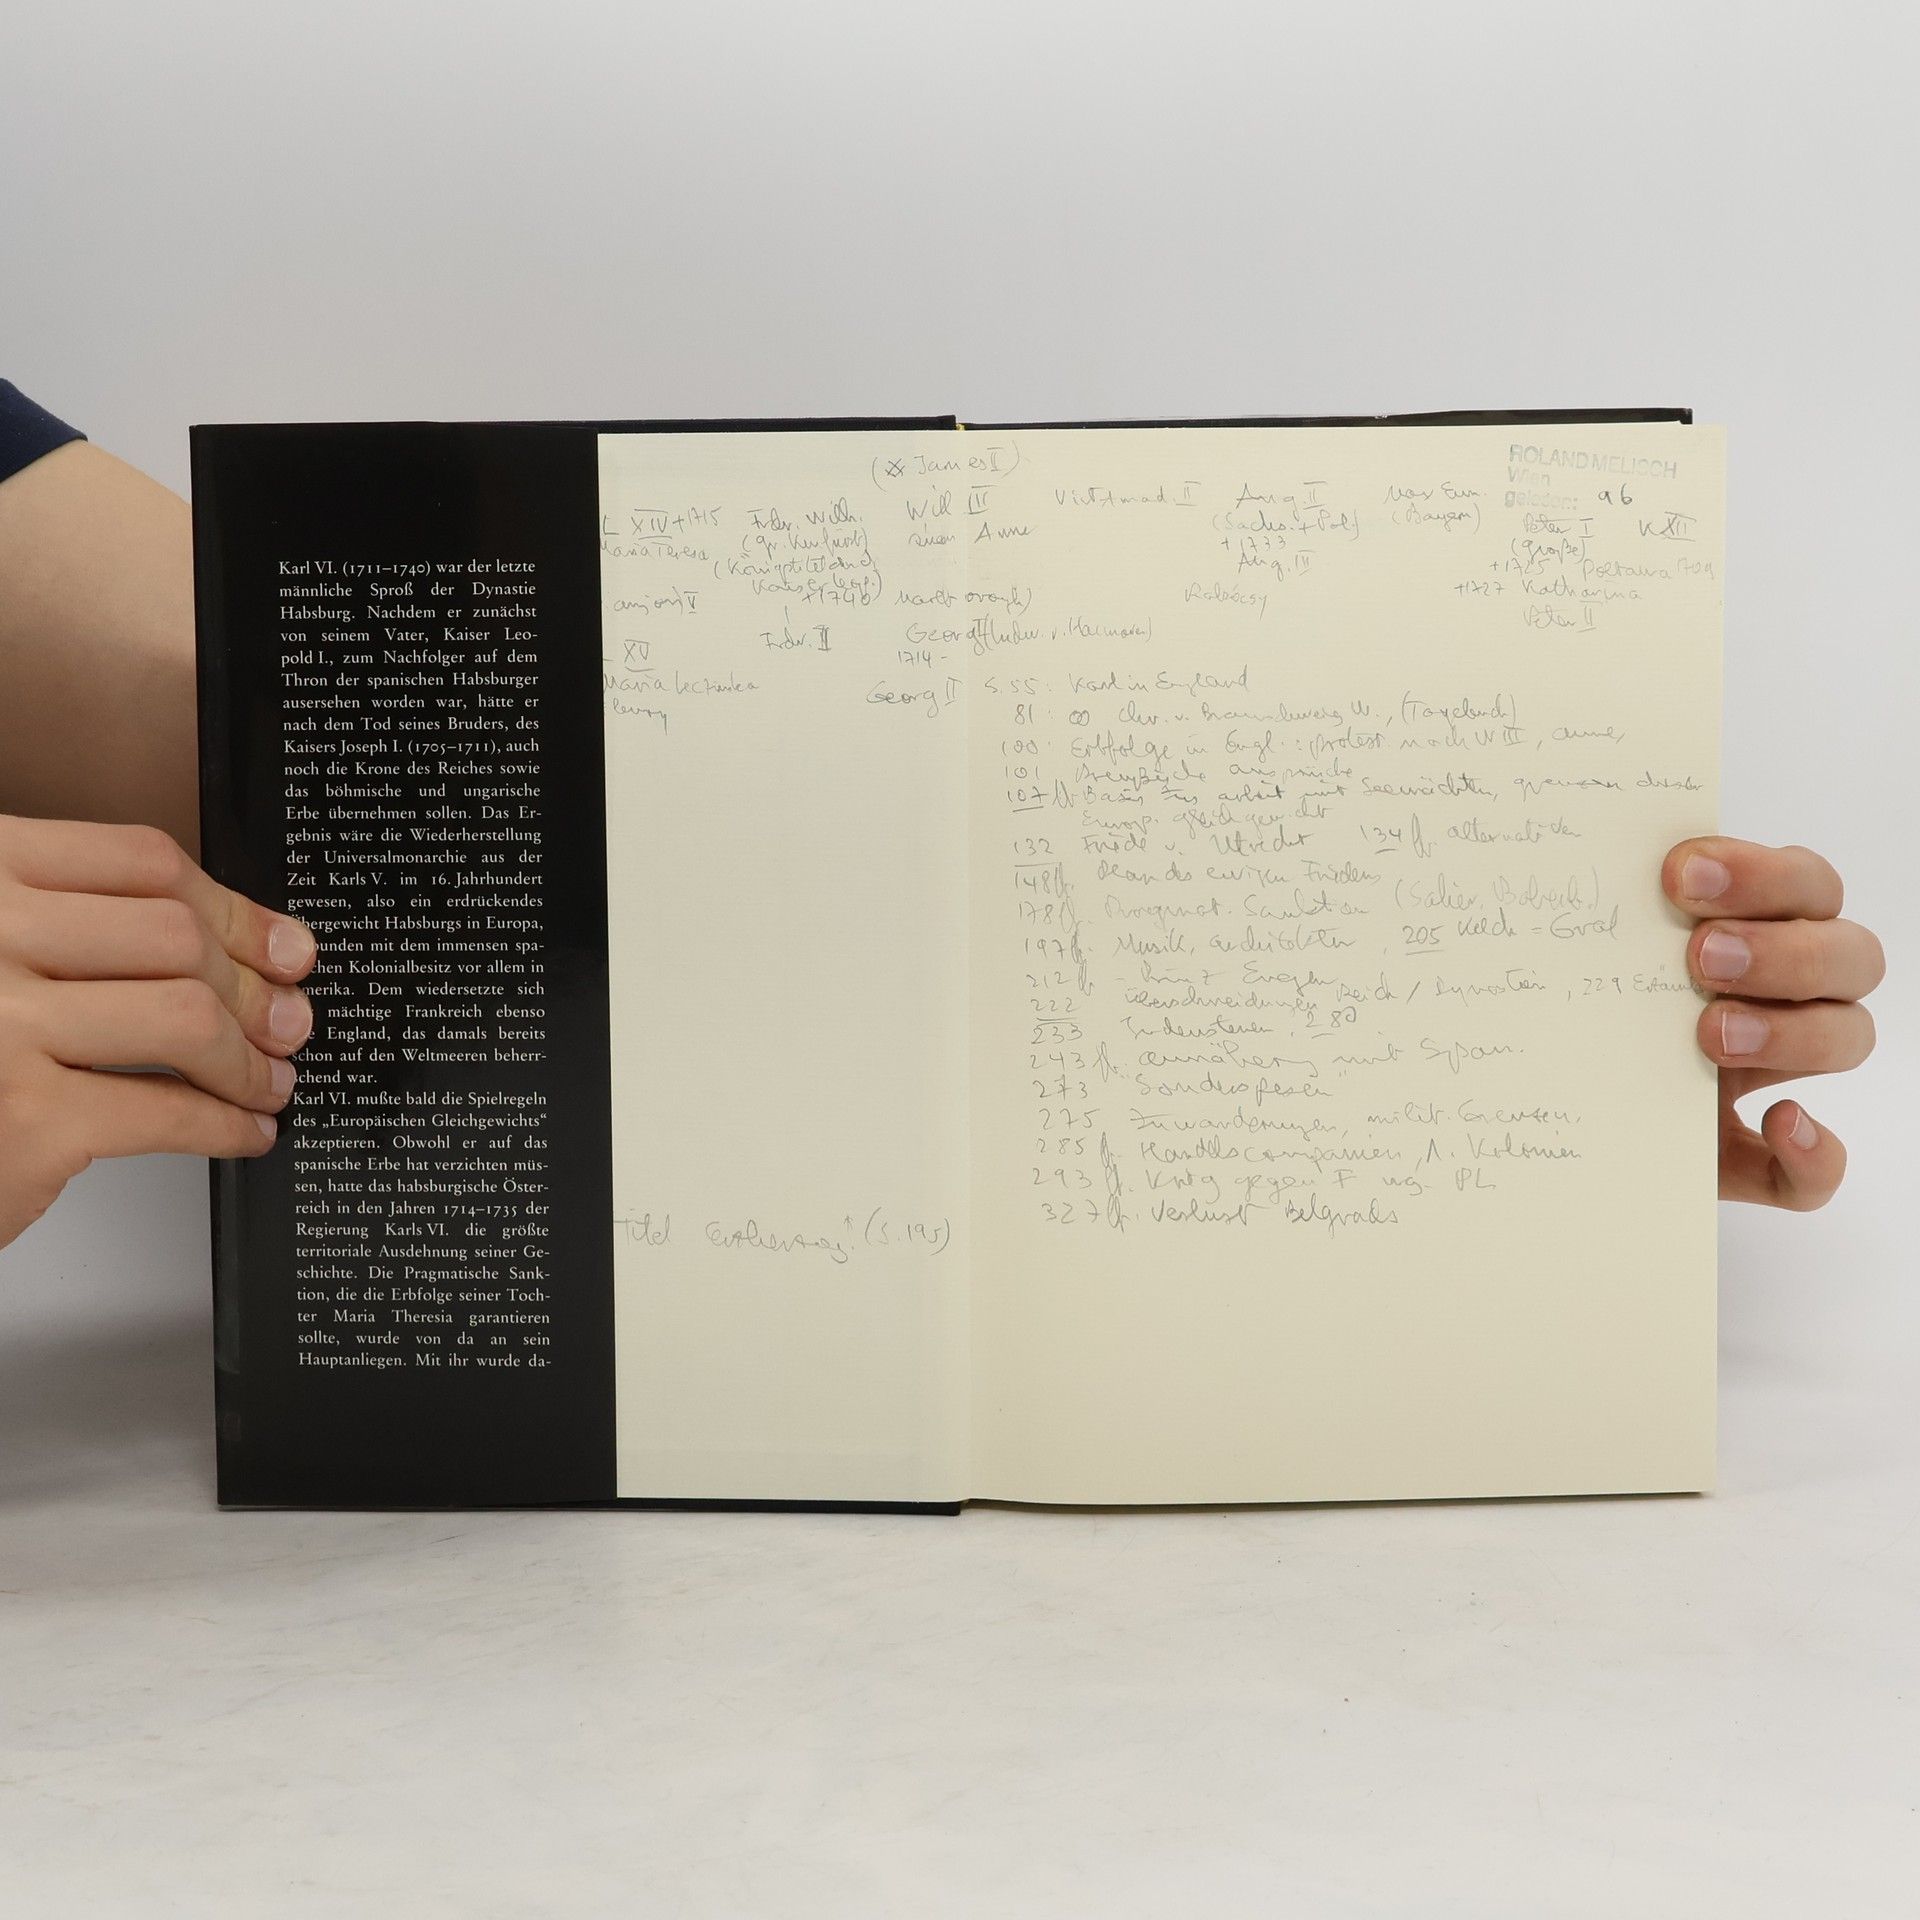 Karl VI. (1711–1740) war der letzte
männliche Sproß der Dynastie
Habsburg. Nachdem er zunächst
von seinem Vater, Kaiser Leo-
pold I., zum Nachfolger auf dem
Thron der spanischen Habsburger
ausersehen worden war, hätte er
nach dem Tod seines Bruders, des
Kaisers Joseph I. (1705–1711), auch
noch die Krone des Reiches sowie
das böhmische und ungarische
Erbe übernehmen sollen. Das Er-
gebnis wäre die Wiederherstellung
der Universalmonarchie aus der
Zeit Karls V. im 16. Jahrhundert
gewesen, also ein erdrückendes
bergewicht Habsburgs in Europa,
bunden mit dem immensen spa-
chen Kolonialbesitz vor allem in
merika. Dem wiedersetzte sich
mächtige Frankreich ebenso
e England, das damals bereits
schon auf den Weltmeeren beherr-
schend war.
Karl VI. mußte bald die Spielregeln
des „Europäischen Gleichgewichts“
akzeptieren. Obwohl er auf das
spanische Erbe hat verzichten müs-
sen, hatte das habsburgische Öster-
reich in den Jahren 1714–1735 der
Regierung Karls VI. die größte
territoriale Ausdehnung seiner Ge-
schichte. Die Pragmatische Sank-
tion, die die Erbfolge seiner Toch-
ter Maria Theresia garantieren
sollte, wurde von da an sein
Hauptanliegen. Mit ihr wurde da-
(James II)
L XIV +1715
Maria Teresa
XV
Maria Leczinska
Frdr. Wilh.
(gr. Kurfürst)
(Königstitel durch
Kaiser Leop.)
+1740
Frdr. II
Will III
Anne
Marlborough)
Georg I (Ludw. v. Hannover)
1714 -
Georg II
Titel (S. 195)
Vikt Amad. II
Aug. II
(Sachs. + Pol.)
+1733
Aug. III
Rakóczy
Max Em.
(Bayern)
ROLAND MELISCH
Wien
gelesen: 96
Peter I
(große)
+1725
+1727 Katharina
Peter II
K XII
Poltawa 709
S. 55: Karl in England
81: ∞ Chr. v. Braunschweig W., (Tagebuch)
100: Erbfolge in Engl.: protest. nach W III, Anne,
101 Preußische Ansprüche
107 ff Seemächten,
Europ. Gleichgewicht
132 Friede v. Utrecht 134 ff. Alternativen
148 ff. Plan des ewigen Friedens
178 ff. Pragmat. Sanktion
197 ff. Musik, Architektur, 205 Kelch = Gral
212 ff - Prinz Eugen
222 Überschneidungen Reich / Dynastien, 229
233 Judensteuer, 280
243 ff. Annäherung mit Span.
273 "Sonderspesen"
275 Zuwanderungen, milit. Grenzen.
285 ff. Handelscompanien, Kolonien
293 ff. Krieg gegen F wg. PL
327 ff. Verlust Belgrads